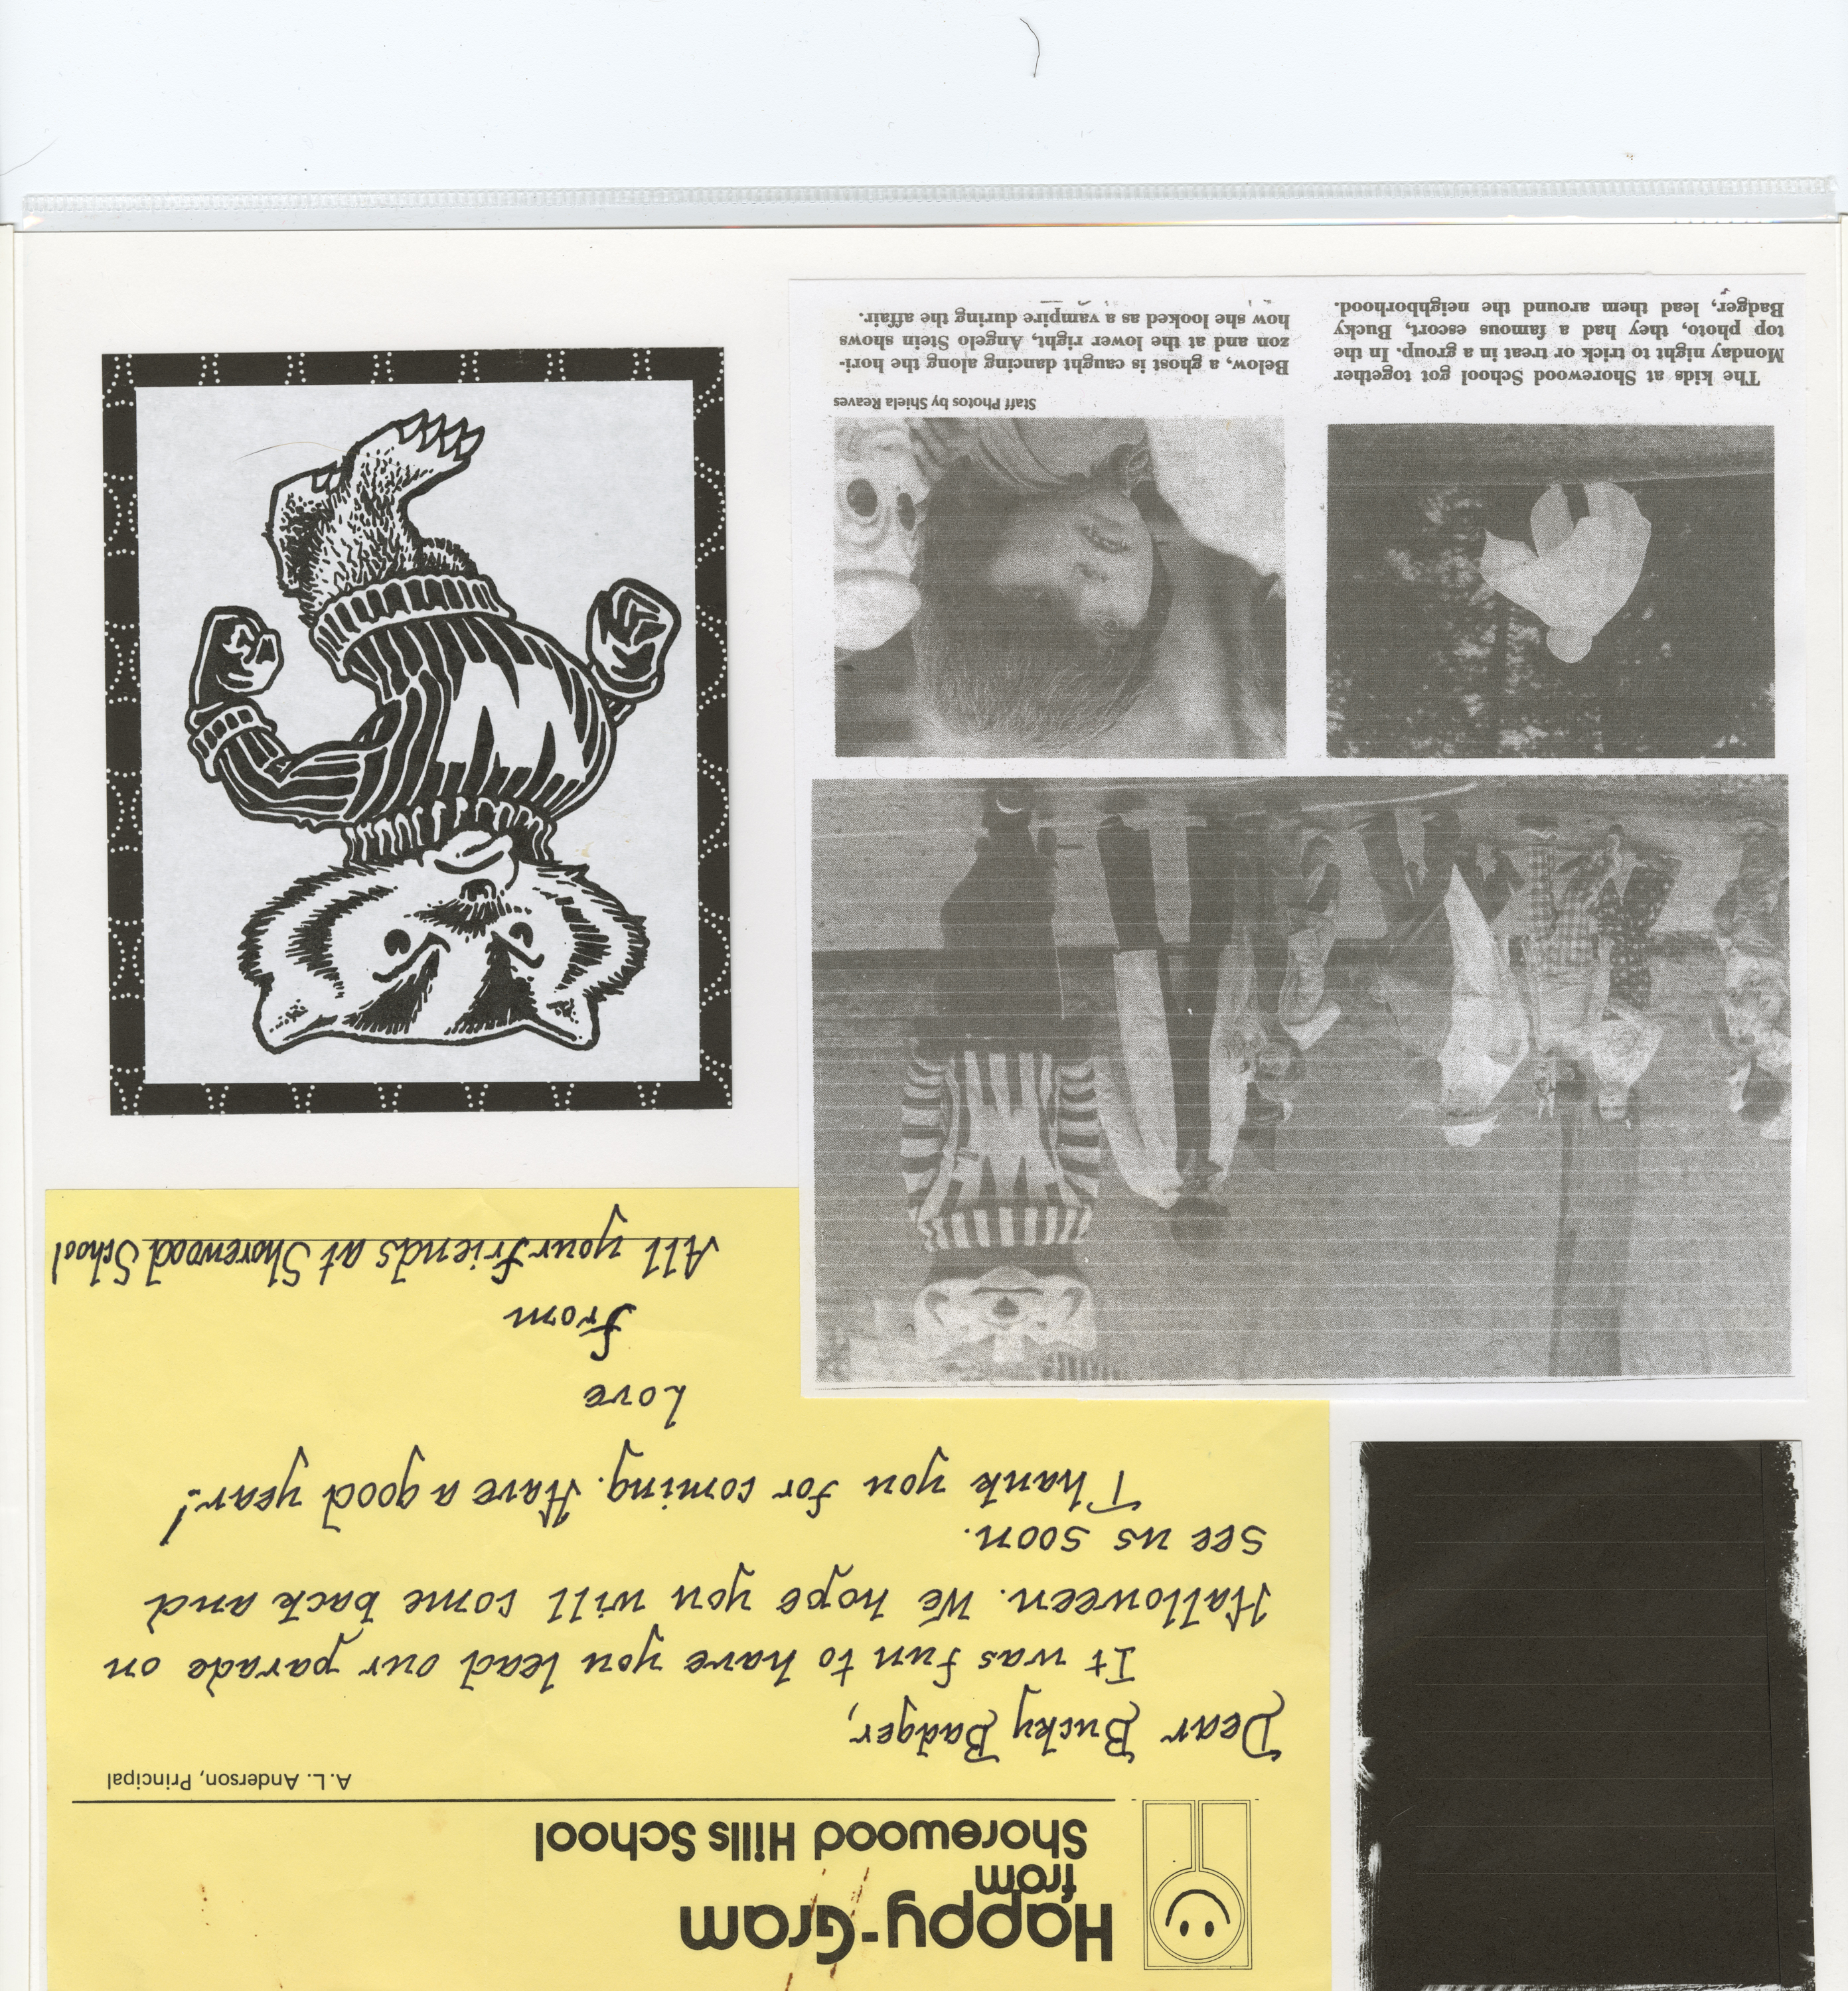 Happy-Gram
from
Shorewood Hills School
A.L. Anderson, Principal
Dear Bucky Badger,
It was fun to have you lead our parade on
Halloween. We hope you will come back and
see us soon.
Thank you for coming. Have a good year!
Love
From
All your friends at Shorewood School
Staff Photos by Shiela Reaves
The kids at Shorewood School got together
Monday night to trick or treat in a group. In the
top photo, they had a famous escort, Bucky
Badger, lead them around the neighborhood.
Below, a ghost is caught dancing along the hori-
zon and at the lower right, Angelo Stein shows
how she looked as a vampire during the affair.